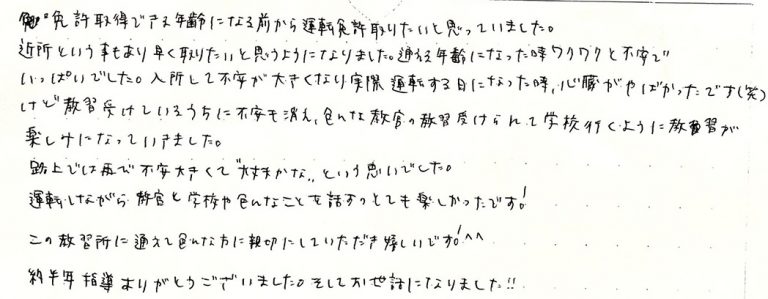 免許取得できる年齢になる前から運転免許取りたいと思っていました。
近所という事もあり早く取りたいと思うようになりました。通える年齢になった時ワクワクと不安で
いっぱいでした。入所して不安が大きくなり実際運転する日になった時、心臓がやばかったです(笑)
けど教習受けているうちに不安も消え、色んな教官の教習受けられて学校行くように教習が
楽しみになっていきました。
路上では再び不安大きくて"大丈夫かな"という思いでした。
運転しながら教官と学校や色んなことを話すのとても楽しかったです!
この教習所に通えて色んな方に親切にしていただき嬉しいです!^^
約半年指導ありがとうございました。そしてお世話になりました!!